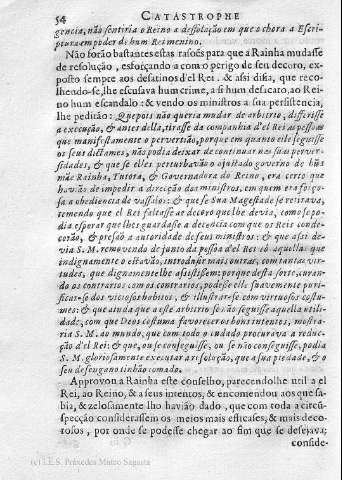 54 CATASTROPHE
gencia, não sentiria o Reino a dessolação em que o chora a Escri-
ptura em poder de hum Rei menino.
Não forão bastantes estas rasoẽs para que a Rainha mudasse
de resolução, esforçando-a com o perigo de seu decoro, ex-
posto sempre aos desatinos d'el Rei. & assi disia, que reco-
lhendo-se, lhe escusava hum crime, a si hum desacato, ao Rei-
no hum escandalo: & vendo os ministros a sua persistencia,
lhe pedirão: Que pois não queria mudar de arbitrio, differisse
a execução, & antes della, tirasse da companhia d'el Rei as pessoas
que manifestamente o pervertião, porque em quanto elle seguisse
os seus dictames, não podia deixar de continuar nas suas perver-
sidades, & que se elles perturbavão o ajustado governo de hũa
mãe Rainha, Tutora, & Governadora do Reino, era certo que
havião de impedir a direcção dos ministros, em quem era força-
sa a obediencia de vassalos: & que se Sua Magestade se retirava,
temendo que el Rei faltasse ao decoro que lhe devia, como se po-
dia esperar que lhes guardasse a decencia com que os Reis conde-
corão, & presão a autoridade de seus ministros: & que assi de-
via S. M. removendo de junto da pessoa d'el Rei aquelles que
indignamente o estavão, introdusir mais outras, com tantas vir-
tudes, que dignamente lhe assistissem: porque desta sorte, curan-
do os contrarios com os contrarios, podesse elle suavemente puri-
ficar-se dos viciosos habitos, & illustrar-se com virtuosos costu-
mes: & que ainda que a este arbitrio se não seguisse aquella utili-
dade, com que Deos costuma favorecer os bons intentos, mostra-
ria S. M. ao mundo, que com todo o cuidado procurava a reduc-
ção d'el Rei: & que, ou se conseguisse, ou se não conseguisse, podia
S. M. gloriosamente executar a resolução, que a sua piedade, & o
seu desengano tinhão tomado.
Approvou a Rainha este conselho, parecendolhe util a el
Rei, ao Reino, & a seus intentos, & encomendou aos que sa-
bia, & zelosamente lho havião dado, que com toda a circũs-
pecção considerassem os meios mais efficases, & mais deco-
rosos, por onde se podesse chegar ao fim que se desejava;
conside-
(c) I.E.S. Práxedes Mateo Sagasta